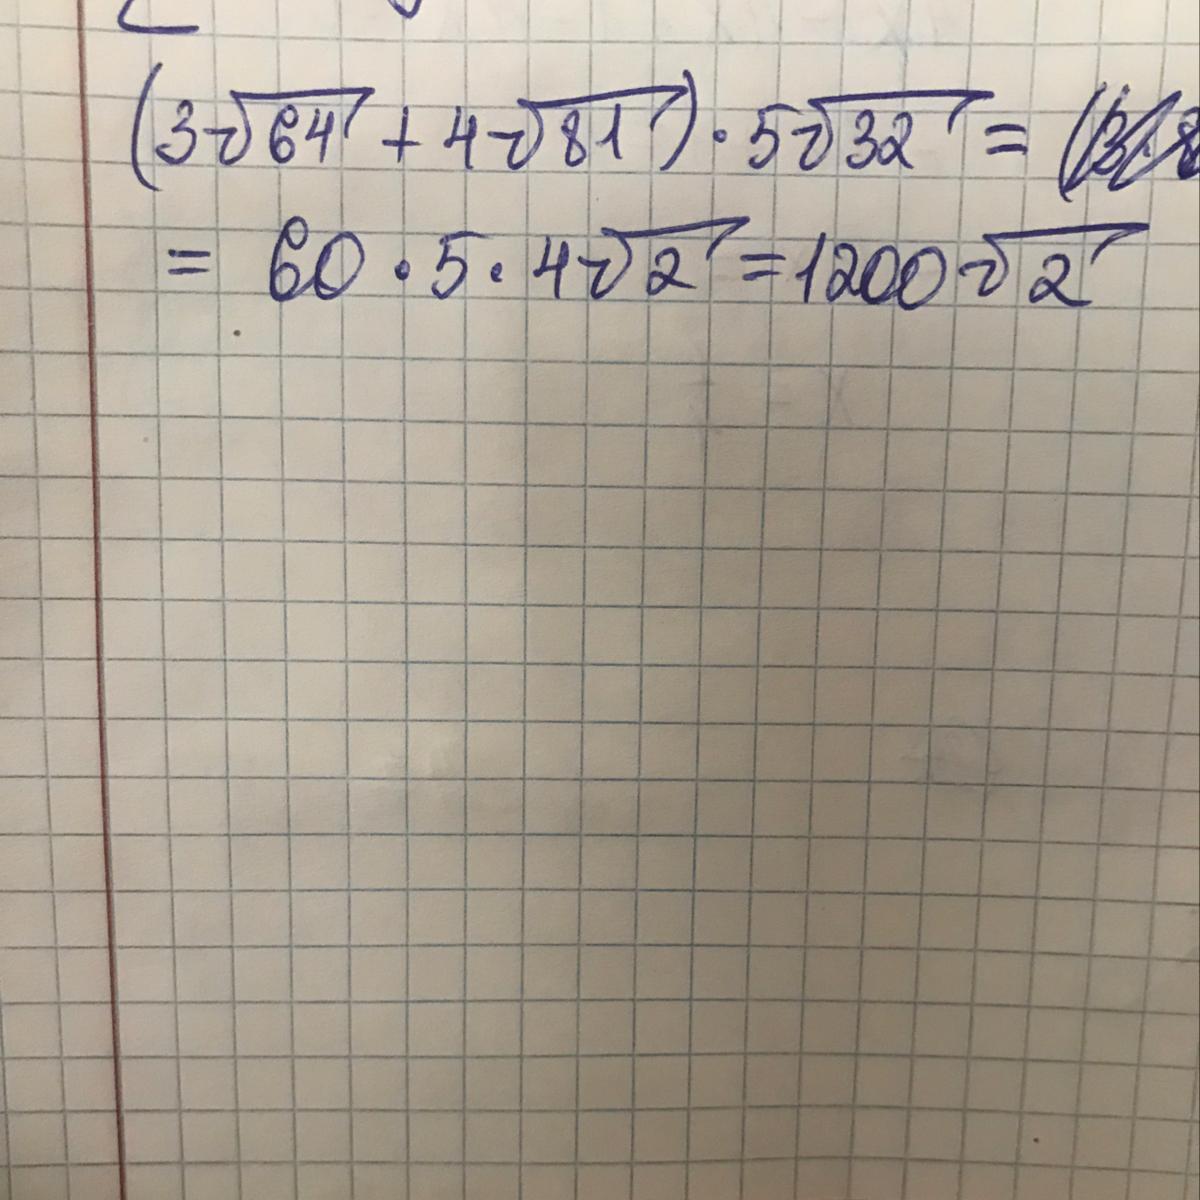 (3√64 + 4√81) · 5√32 =
= 60 · 5 · 4√2 = 1200√2